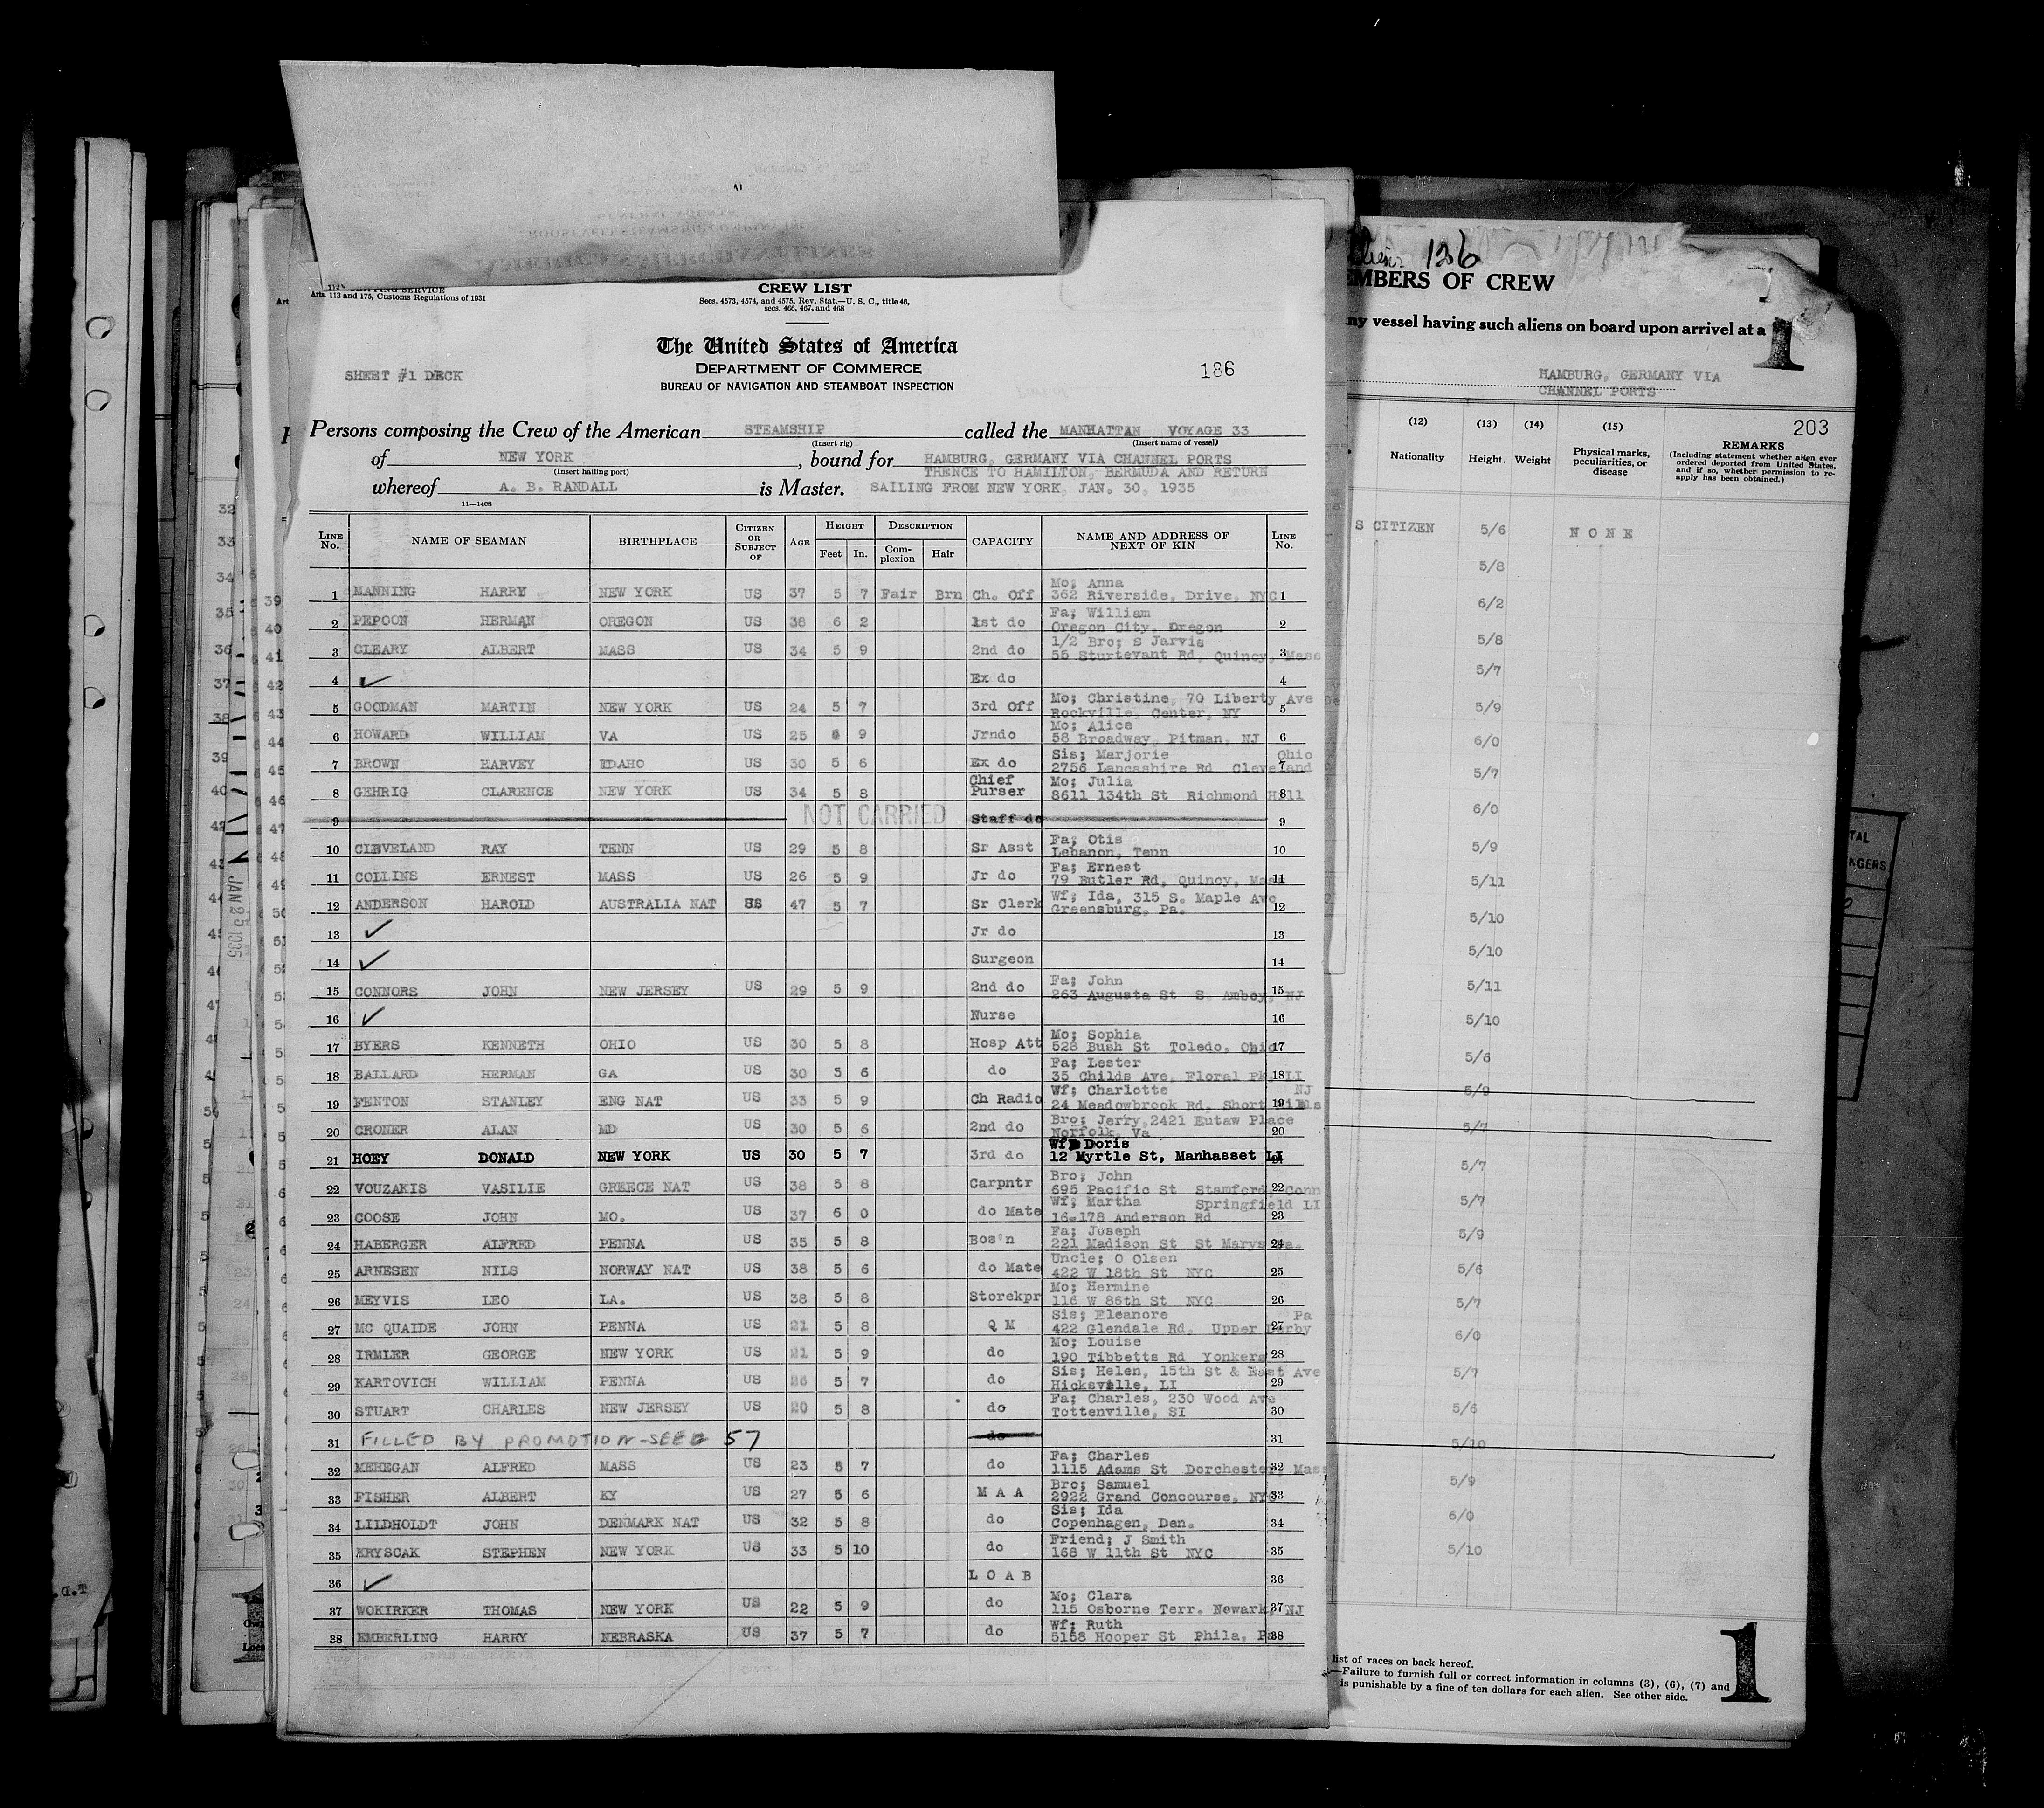 CREW LIST
Arts. 113 and 175, Customs Regulations of 1931
Secs. 4573, 4574, and 4575, Rev. Stat.—U. S. C., title 46,
secs. 466, 467, and 468
The United States of America
DEPARTMENT OF COMMERCE
BUREAU OF NAVIGATION AND STEAMBOAT INSPECTION
SHEET #1 DECK
186
Persons composing the Crew of the American STEAMSHIP called the MANHATTAN VOYAGE 33
(Insert rig) (Insert name of vessel)
of NEW YORK, bound for HAMBURG, GERMANY VIA CHANNEL PORTS
(Insert hailing port) THENCE TO HAMILTON, BERMUDA AND RETURN
whereof A. B. RANDALL is Master. SAILING FROM NEW YORK, JAN. 30, 1935
11—1408
LINE No. NAME OF SEAMAN BIRTHPLACE CITIZEN OR SUBJECT OF AGE HEIGHT Feet In. DESCRIPTION Complexion Hair CAPACITY NAME AND ADDRESS OF NEXT OF KIN LINE No.
1 MANNING HARRY NEW YORK US 37 5 7 Fair Brn Ch. Off Mo; Anna 362 Riverside, Drive, NYC 1
2 PEPOON HERMAN OREGON US 38 6 2 1st do Fa; William Oregon City, Oregon 2
3 CLEARY ALBERT MASS US 34 5 9 2nd do 1/2 Bro; S Jarvis 55 Sturtevant Rd, Quincy, Mass 3
4 Ex do 4
5 GOODMAN MARTIN NEW YORK US 24 5 7 3rd Off Mo; Christine, 70 Liberty Ave Rockville, Center, NY 5
6 HOWARD WILLIAM VA US 25 9 Jrndo Mo; Alice 58 Broadway, Pitman, NJ 6
7 BROWN HARVEY IDAHO US 30 5 6 Ex do Sis; Marjorie 2756 Lancashire Rd Cleveland Ohio 7
8 GEHRIG CLARENCE NEW YORK US 34 5 8 Chief Purser Mo; Julia 8611 134th St Richmond Hill 8
9 NOT CARRIED Staff do 9
10 CLEVELAND RAY TENN US 29 5 8 Sr Asst Fa; Otis Lebanon, Tenn 10
11 COLLINS ERNEST MASS US 26 5 9 Jr do Fa; Ernest 79 Butler Rd, Quincy, Mass 11
12 ANDERSON HAROLD AUSTRALIA NAT US 47 5 7 Sr Clerk Wf; Ida, 315 S. Maple Ave Greensburg, Pa. 12
13 Jr do 13
14 Surgeon 14
15 CONNORS JOHN NEW JERSEY US 29 5 9 2nd do Fa; John 263 Augusta St S. Amboy, NJ 15
16 Nurse 16
17 BYERS KENNETH OHIO US 30 5 8 Hosp Att Mo; Sophia 528 Bush St Toledo, Ohio 17
18 BALLARD HERMAN GA US 30 5 6 do Fa; Lester 35 Childs Ave, Floral Pk, LI 18
19 FENTON STANLEY ENG NAT US 33 5 9 Ch Radio Wf; Charlotte 24 Meadowbrook Rd, Short Hills NJ 19
20 CRONER ALAN MD US 30 5 6 2nd do Bro; Jerry, 2421 Eutaw Place Norfolk, Va 20
21 HOEY DONALD NEW YORK US 30 5 7 3rd do Wf; Doris 12 Myrtle St, Manhasset LI 21
22 VOUZAKIS VASILIE GREECE NAT US 38 5 8 Carpntr Bro; John 695 Pacific St Stamford, Conn 22
23 COOSE JOHN MO. US 37 6 0 do Mate Wf; Martha Springfield LI 16-178 Anderson Rd 23
24 HABERGER ALFRED PENNA US 35 5 8 Bos'n Fa; Joseph 221 Madison St St Marys Pa. 24
25 ARNESEN NILS NORWAY NAT US 38 5 6 do Mate Uncle; O Olsen 422 W 18th St NYC 25
26 MEYVIS LEO LA. US 38 5 8 Storekpr Mo; Hermine 116 W 86th St NYC 26
27 MC QUAIDE JOHN PENNA US 21 5 8 Q M Sis; Eleanore 422 Glendale Rd, Upper Derby Pa 27
28 IRMLER GEORGE NEW YORK US 21 5 9 do Mo; Louise 190 Tibbetts Rd Yonkers 28
29 KARTOVICH WILLIAM PENNA US 26 5 7 do Sis; Helen, 15th St & East Ave Hicksville, LI 29
30 STUART CHARLES NEW JERSEY US 20 5 8 do Fa; Charles, 230 Wood Ave Tottenville, SI 30
31 FILLED BY PROMOTION-SEE 57 do 31
32 MEHEGAN ALFRED MASS US 23 5 7 do Fa; Charles 1115 Adams St Dorchester, Mass 32
33 FISHER ALBERT KY US 27 5 6 M A A Bro; Samuel 2922 Grand Concourse, NYC 33
34 LILDHOLDT JOHN DENMARK NAT US 32 5 8 do Sis; Ida Copenhagen, Den. 34
35 KRYSCAK STEPHEN NEW YORK US 33 5 10 do Friend; J Smith 168 W 11th St NYC 35
36 L O A B 36
37 WOKIRKER THOMAS NEW YORK US 22 5 9 do Mo; Clara 115 Osborne Terr. Newark, NJ 37
38 EMBERLING HARRY NEBRASKA US 37 5 7 do Wf; Ruth 5158 Hooper St Phila, Pa 38
126
MEMBERS OF CREW
any vessel having such aliens on board upon arrival at a
1
HAMBURG, GERMANY VIA
CHANNEL PORTS
203
(12) (13) (14) (15)
Nationality Height Weight Physical marks, peculiarities, or disease
REMARKS
(Including statement whether alien ever
ordered deported from United States,
and if so, whether permission to re-
apply has been obtained.)
S CITIZEN 5/6 NONE
5/8
6/2
5/8
5/7
5/9
6/0
5/7
6/0
5/9
5/11
5/10
5/10
5/11
5/10
5/6
5/9
5/7
5/7
5/7
5/9
5/6
5/7
6/0
5/7
5/6
5/10
5/9
6/0
5/10
list of races on back hereof.
—Failure to furnish full or correct information in columns (3), (6), (7) and
is punishable by a fine of ten dollars for each alien. See other side.
1
JAN 25 1935